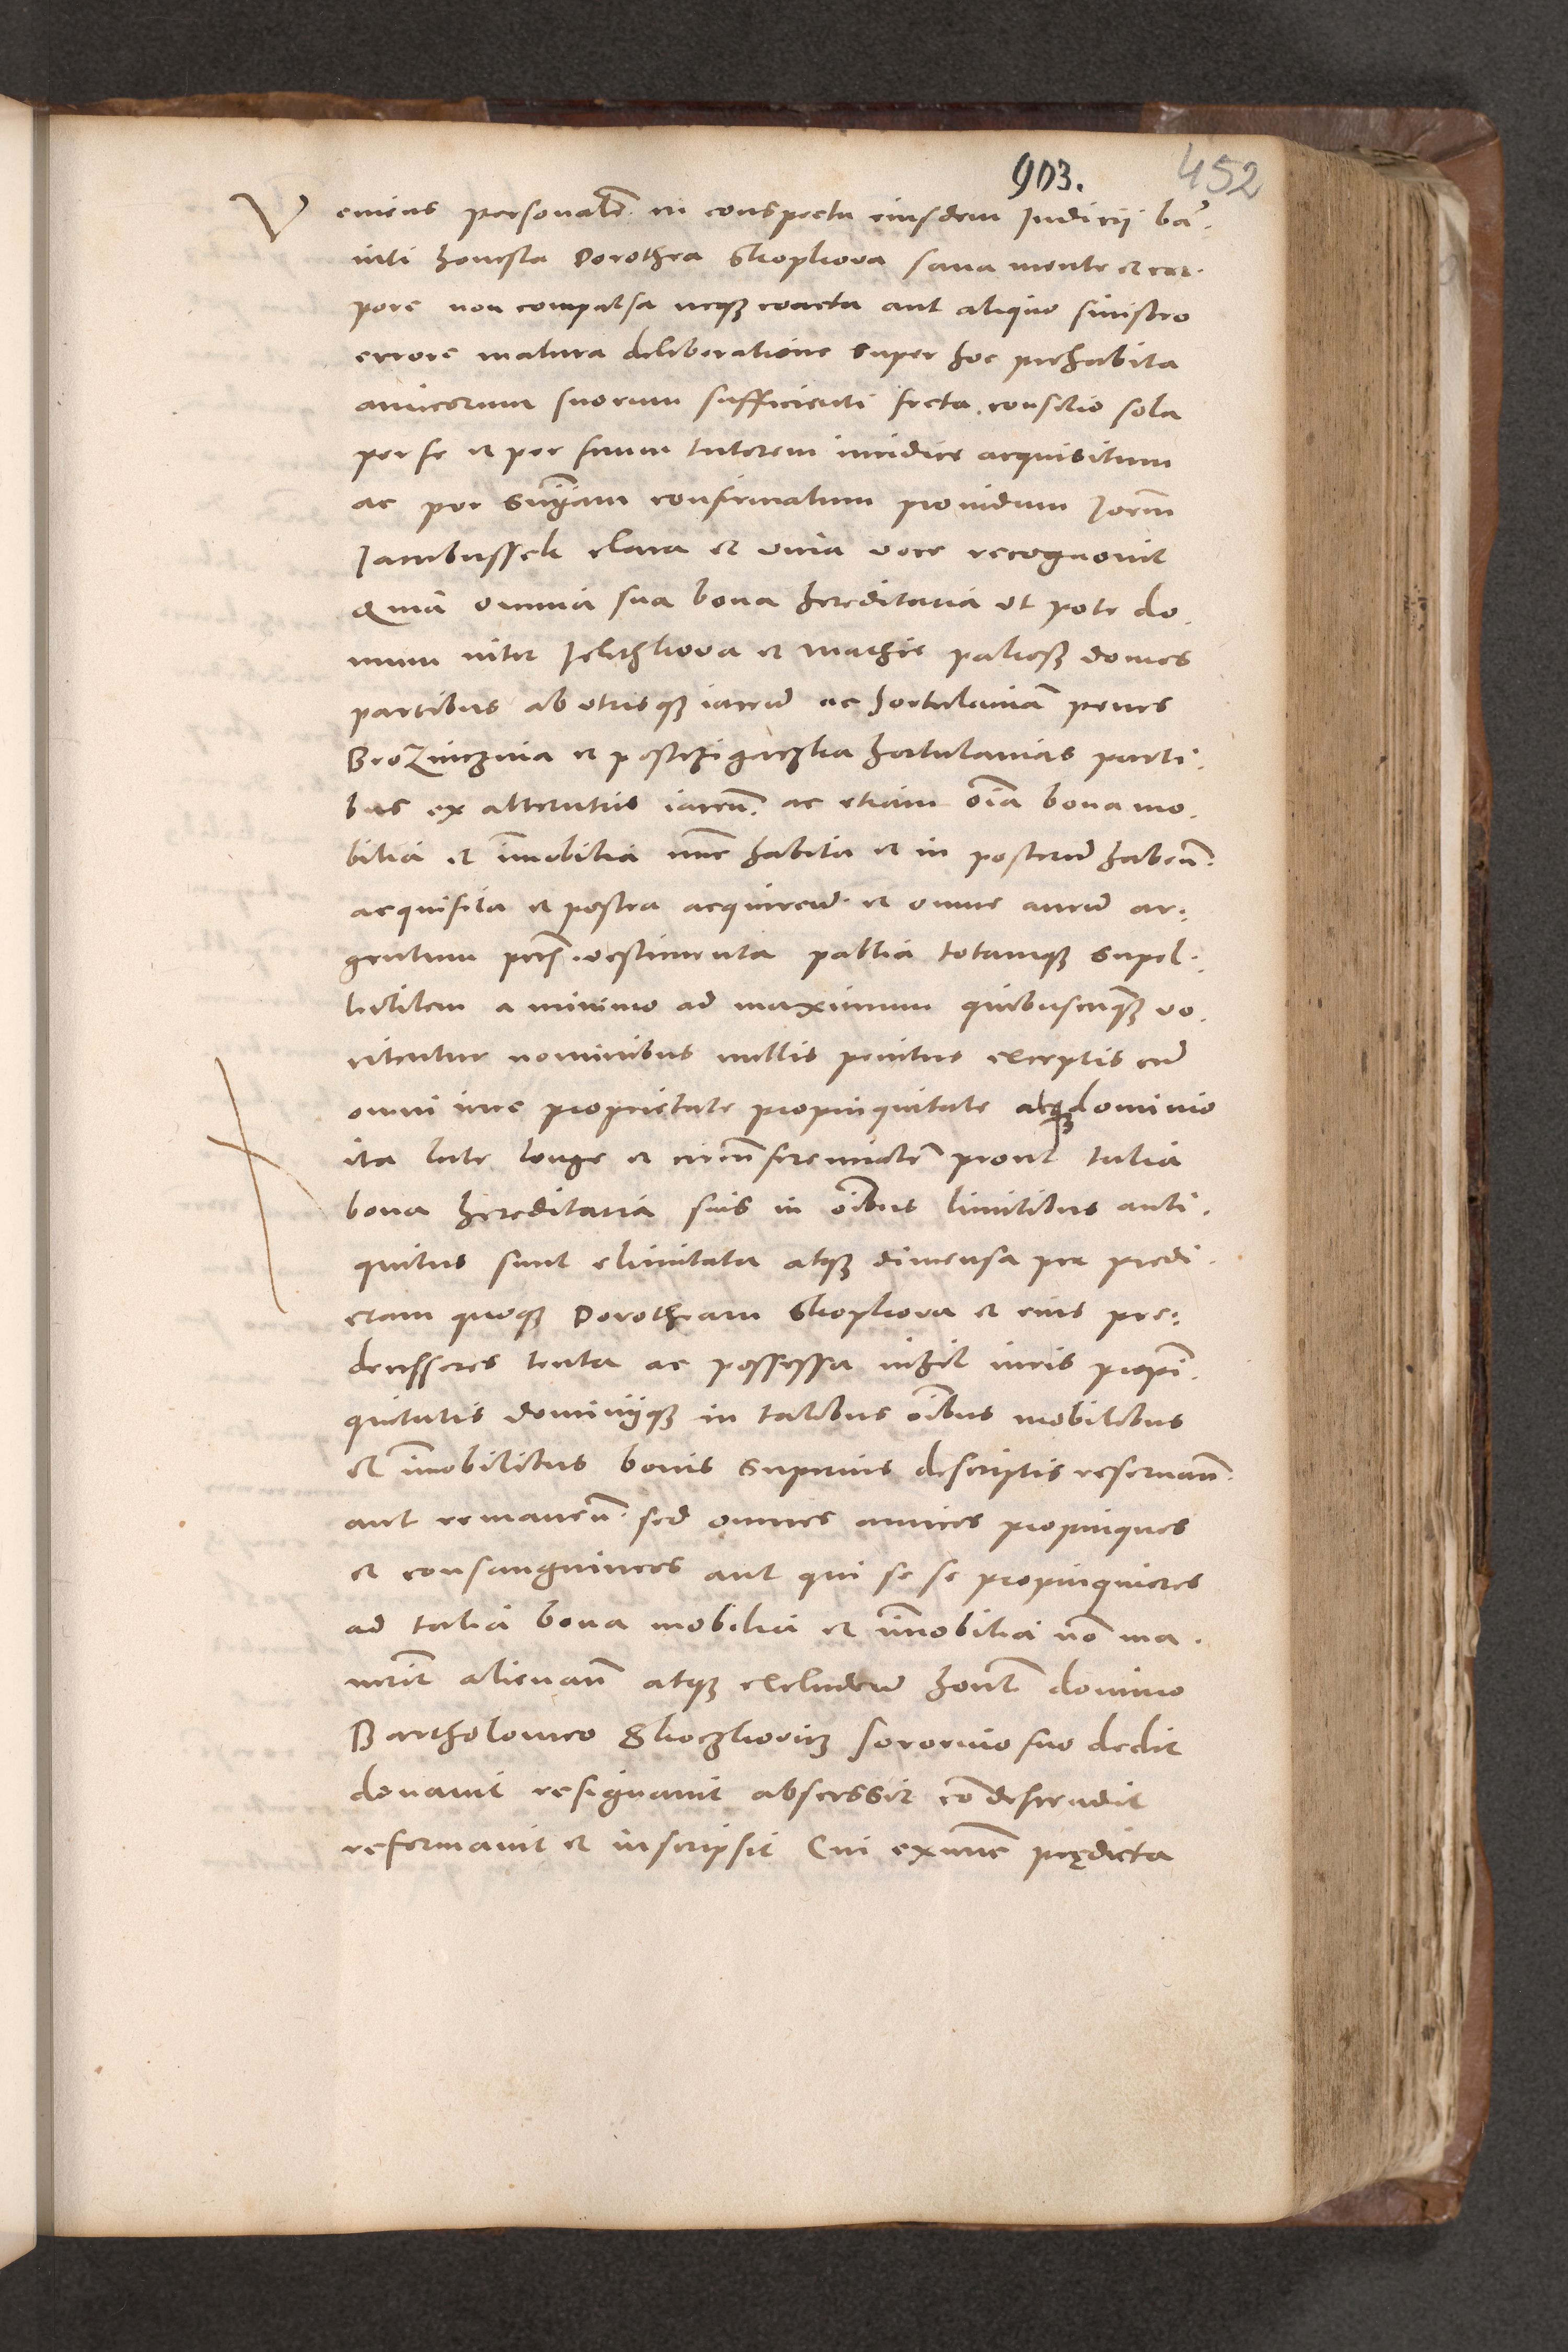 903. 452
Veniens personalr̃ in conspectu eiusdem Iudicij bã.
niti honesta Dorothea Skopkova sana mente et cor.
pore non compulsa neqȝ coacta aut aliquo sinistro
errore matura deliberatione super hoc prehabita
amicorum suorum sufficienti freta consilio sola
per se et per suum tutorem iuridice acquisitum
ac per confirmatum prouidum
clara et viua voce recognouit
Quia omnia sua bona hereditaria vt pote do.
mum inter et Mathie domos
partibus ab vtrisqȝ iaceñ ac hortulaniã penes
et hortulanias parti.
bus ex alterutris iaceñ. ac etiam oĩa bona mo.
bilia et ĩmobilia nũc habita et in posterũ habeñ.
acquisita et postea acquireñ. et omne aurũ ar.
gentum vestimenta pallia totamqȝ supel.
lectilem a minimo ad maximum quibuscũqȝ vo.
citentur nominibus nullis penitus exceptis cũ
omni iure proprietate propinquitate atqȝ dominio
ita late longe et prout talia
bona hereditaria suis in oĩbus limitibus anti.
quitus sunt elimitata atqȝ dimensa per predi.
ctam quoqȝ Dorotheam Skopkova et eius pre.
decessores tenta ac possessa nihil iuris propĩ.
quitatis dominijqȝ in talibus oĩbus mobilibus
et ĩmobilibus bonis superius descriptis reseruañ.
aut remaneñ. sed omnes amicos propinquos
et consanguineos aut qui se se propinquiores
ad talia bona mobilia et ĩmobilia nõ
alienañ atqȝ excludeñ domino
Bartholomeo sororino suo dedit
donauit resignauit abscessit cõdescendit
reformauit et inscripsit Cui exnũc prędicta